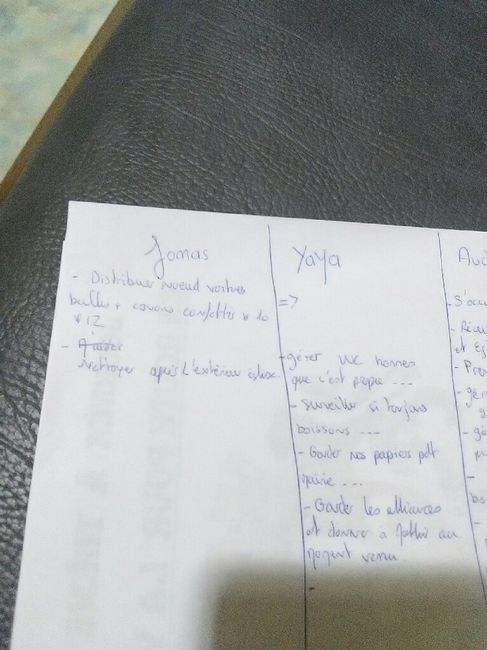 Jomas
- Distribuer noeud voitures
bulles + canons confettis x 10
x 12
- Aider
Nettoyer après l'extérieur église
Yaya
=>
- gérer WC bonnes
que c'est propre ---
- Surveiller si toujours
boissons ---
- Garder nos papiers pdt
mairie ---
- Garder les alliances
et donner à au
moment venu.
-
S'occ
- Récu
et Eg
- Pro
- gér
- gé
-